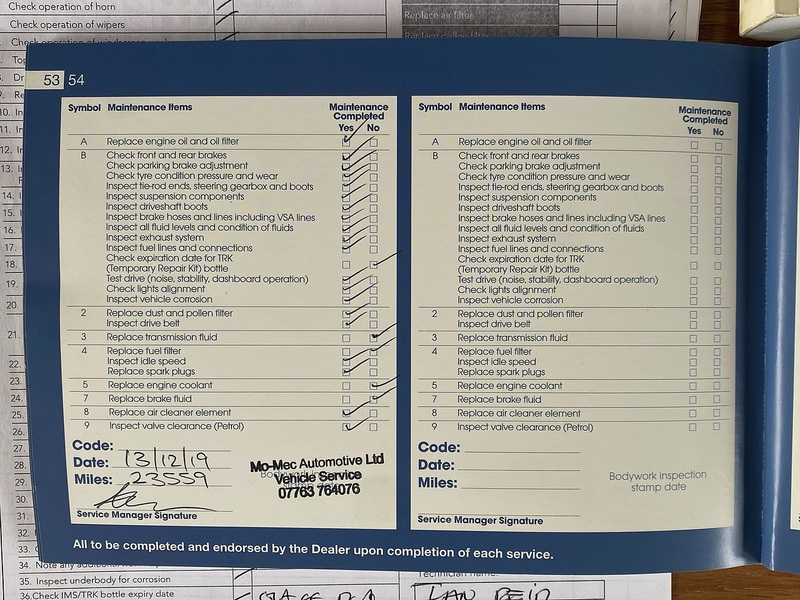 Check operation of horn
Check operation of wipers
Replace air filter
53 54
Symbol Maintenance Items Maintenance Completed
Yes No
A Replace engine oil and oil filter
B Check front and rear brakes
Check parking brake adjustment
Check tyre condition pressure and wear
Inspect tie-rod ends, steering gearbox and boots
Inspect suspension components
Inspect driveshaft boots
Inspect brake hoses and lines including VSA lines
Inspect all fluid levels and condition of fluids
Inspect exhaust system
Inspect fuel lines and connections
Check expiration date for TRK
(Temporary Repair Kit) bottle
Test drive (noise, stability, dashboard operation)
Check lights alignment
Inspect vehicle corrosion
2 Replace dust and pollen filter
Inspect drive belt
3 Replace transmission fluid
4 Replace fuel filter
Inspect idle speed
Replace spark plugs
5 Replace engine coolant
7 Replace brake fluid
8 Replace air cleaner element
9 Inspect valve clearance (Petrol)
Code:
Date: 13/12/19
Miles: 23559
Service Manager Signature
Mo-Mec Automotive Ltd
Vehicle Service
07763 764076
Symbol Maintenance Items Maintenance Completed
Yes No
A Replace engine oil and oil filter
B Check front and rear brakes
Check parking brake adjustment
Check tyre condition pressure and wear
Inspect tie-rod ends, steering gearbox and boots
Inspect suspension components
Inspect driveshaft boots
Inspect brake hoses and lines including VSA lines
Inspect all fluid levels and condition of fluids
Inspect exhaust system
Inspect fuel lines and connections
Check expiration date for TRK
(Temporary Repair Kit) bottle
Test drive (noise, stability, dashboard operation)
Check lights alignment
Inspect vehicle corrosion
2 Replace dust and pollen filter
Inspect drive belt
3 Replace transmission fluid
4 Replace fuel filter
Inspect idle speed
Replace spark plugs
5 Replace engine coolant
7 Replace brake fluid
8 Replace air cleaner element
9 Inspect valve clearance (Petrol)
Code:
Date:
Miles:
Service Manager Signature
Bodywork inspection
stamp date
All to be completed and endorsed by the Dealer upon completion of each service.
35. Inspect underbody for corrosion
36.Check IMS/TRK bottle expiry date